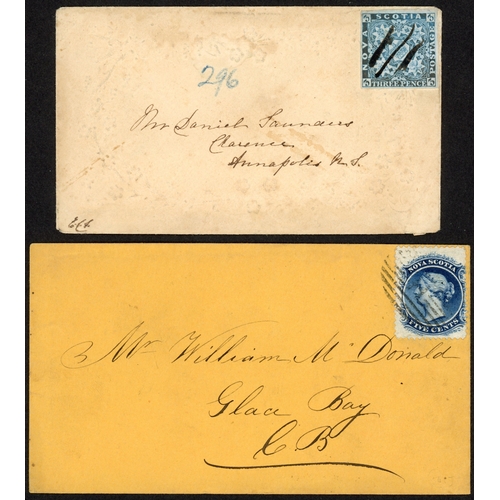 NOVA
SCOTIA
NOVA SCO
THREE PENCE
296
Mr Daniel Saunders
Clarence
Annapolis N.S.
NOVA SCOTIA
FIVE CENTS
Mr William McDonald
Glace Bay
C B